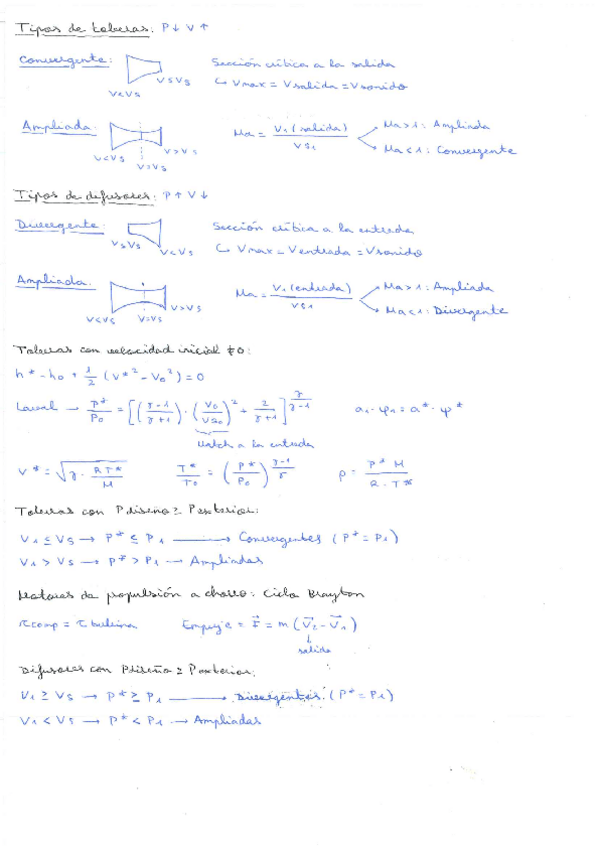 Tipos de toberas: P↓ V↑
Convergente:
V<Vs
V≤Vs
Sección crítica a la salida
↳ Vmax = Vsalida = Vsonido
Ampliada:
V<Vs
V=Vs
V>Vs
Ma = V1(salida) / Vs1
Ma>1: Ampliada
Ma<1: Convergente
Tipos de difusores: P↑ V↓
Divergente:
V≥Vs
V<Vs
Sección crítica a la entrada
↳ Vmax = Ventrada = Vsonido
Ampliada:
V<Vs
V=Vs
V>Vs
Ma = V1(entrada) / Vs1
Ma>1: Ampliada
Ma<1: Divergente
Toberas con velocidad inicial ≠0:
h* - h0 + 1/2 (V*² - V0²) = 0
Laval → P*/P0 = [(γ-1/γ+1)·(V0/Vs0)² + 2/γ+1]^(γ/γ-1)
a1·φ1 = a*·φ*
Match a la entrada
V* = √(γ · RT*/M)
T*/T0 = (P*/P0)^(γ-1/γ)
ρ = P* M / R·T*
Toberas con Pdiseño ≥ Pexterior:
V1 ≤ Vs → P* ≤ P1 → Convergentes (P* = P1)
V1 > Vs → P* > P1 → Ampliadas
Motores de propulsión a chorro: Ciclo Brayton
τcomp = τturbina
Empuje = F⃗ = m (V⃗2 - V⃗1)
↓
salida
Difusores con Pdiseño ≥ Pexterior:
V1 ≥ Vs → P* ≥ P1 → Divergentes (P* = P1)
V1 < Vs → P* < P1 → Ampliadas